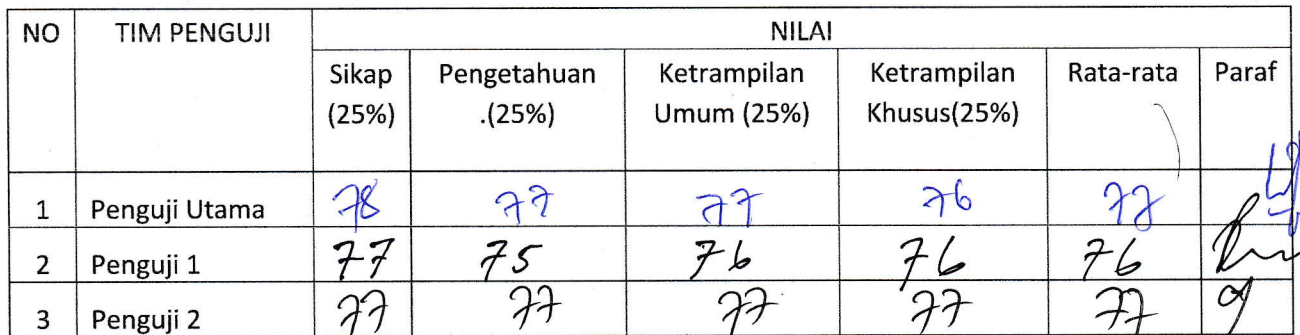 NO TIM PENGUJI NILAI
Sikap (25%) Pengetahuan .(25%) Ketrampilan Umum (25%) Ketrampilan Khusus(25%) Rata-rata Paraf
1 Penguji Utama 78 77 77 76 77
2 Penguji 1 77 75 76 76 76
3 Penguji 2 77 77 77 77 77